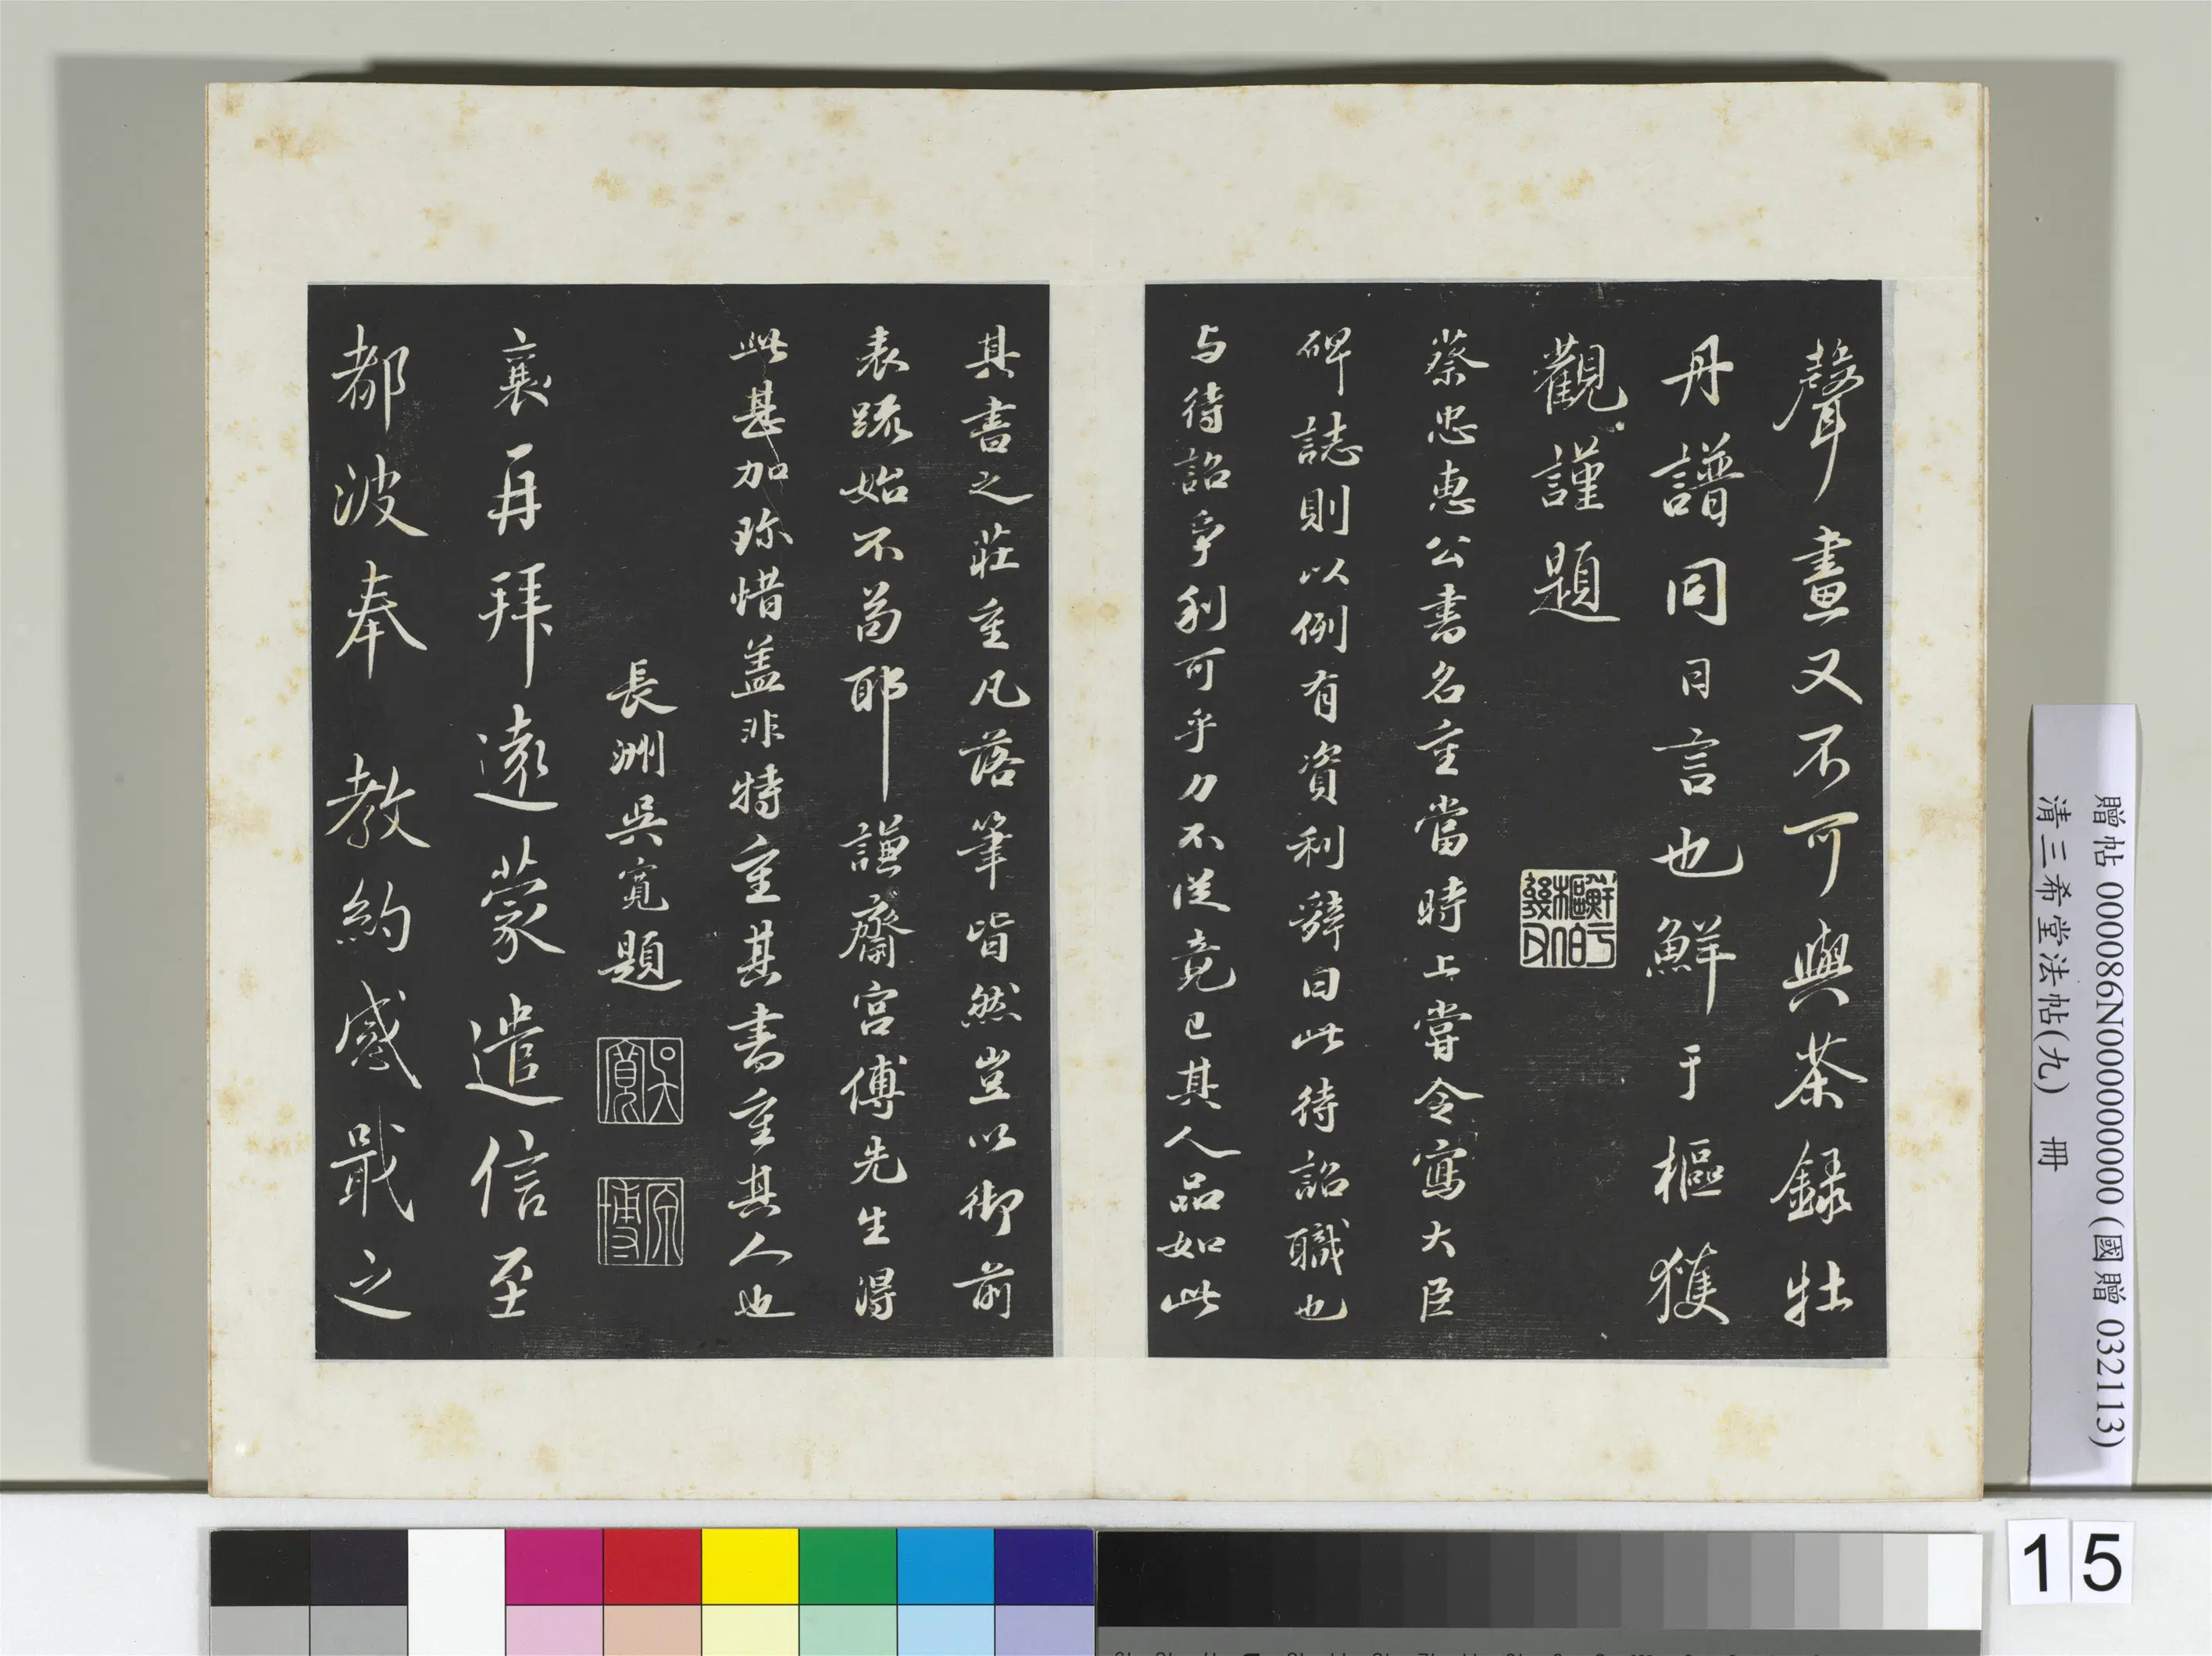 聲畫又不可與茶録牡
丹譜同日言也鮮于樞獲
觀謹題
蔡忠惠公書名重當時上嘗令寫大臣
碑誌則以例有資利辭曰此待詔職也
与待詔爭利可乎力不從竟已其人品如此
其書之莊重凡落筆皆然豈以御前
表疏始不苟耶謙齋宮傅先生得
此甚加珎惜盖非特重其書重其人也
長洲吳寬題
吳寬
原博
襄再拜遠蒙遣信至
都波奉教約感戢之
贈帖 000086N000000000 (國贈 032113)
清三希堂法帖(九) 冊
15